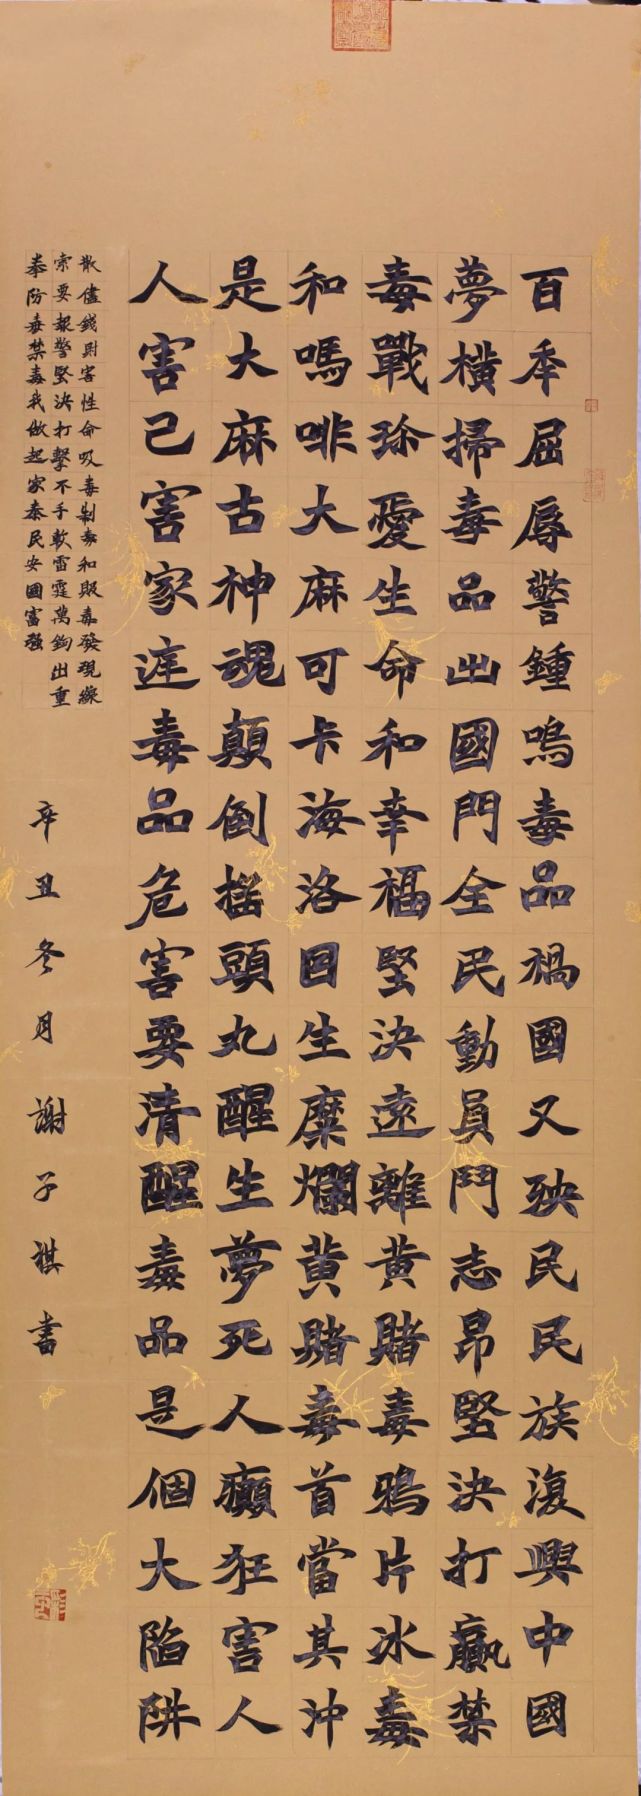 百年屈辱警鍾鳴毒品禍國又殃民民族復興中國
夢橫掃毒品出國門全民動員鬥志昂堅決打贏禁
毒戰珍愛生命和幸福堅決遠離黃賭毒鴉片冰毒
和嗎啡大麻可卡海洛因生糜爛黃賭毒首當其沖
是大麻古柯魂顛倒搖頭丸醒生夢死人癲狂害人
人害己害家庭毒品危害要清醒毒品是個大陷阱
散儘錢財害性命吸毒制毒和販毒發現線
索要報警堅決打擊不手軟雷霆萬鈞出重
拳防毒禁毒我做起家泰民安國富强
辛丑冬月謝子祺書